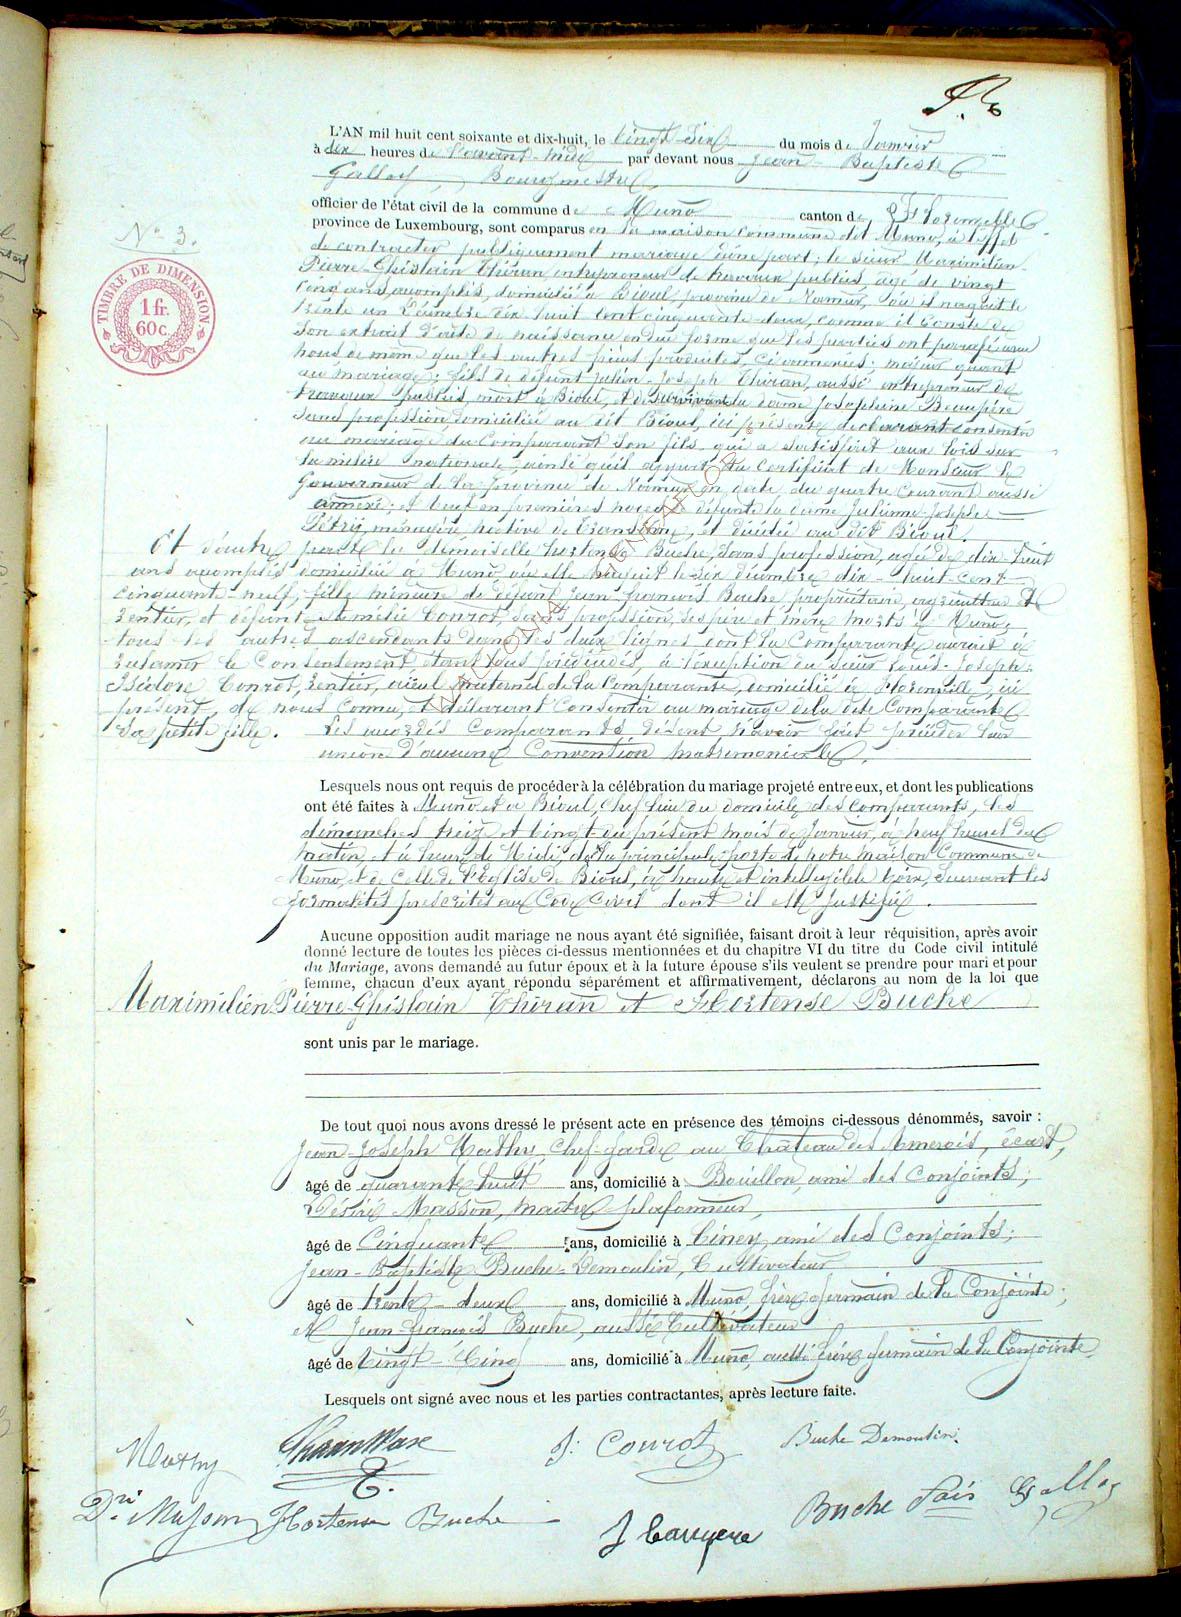 L'AN mil huit cent soixante et dix-huit, le vingt-six du mois de Janvier
à dix heures de l'avant-midi par devant nous Jean-Baptiste
Galloy, Bourgmestre,
officier de l'état civil de la commune de Muno canton de Florenville
province de Luxembourg, sont comparus en la maison commune dit Muno, à l'effet
de contracter publiquement mariage d'une part; le sieur Maximilien-
Pierre-Ghislain Thiran, entrepreneur de travaux publics, âgé de vingt
cinq ans accomplis, domicilié à Bioul, province de Namur, où il naquit le
trente un Décembre dix-huit cent cinquante-deux, comme il conste de
son extrait d'acte de naissance en due forme que les parties ont parafé avec
nous de même que les autres pièces produites, ci annexées; majeur quant
au mariage; fils de défunt Julien-Joseph Thiran, aussi entrepreneur de
travaux publics, mort à Bioul, et de survivante dame Josephine Beaupère
sans profession domiciliée au dit Bioul, ici présente déclarant consentir
au mariage du Comparant son fils, qui a satisfait aux lois sur
la milice nationale, ainsi qu'il appert du certificat de Monsieur le
Gouverneur de la province de Namur en date du quatre courant aussi
annexé; et veuf en premières noces de défunte la dame Julienne-Josephe
Pétry, ménagère, native de et décédée au dit Bioul.
N° 3.
TIMBRE DE DIMENSION
1 fr.
60 c.
Et d'autre part la demoiselle Hortense Buche, sans profession, âgée de dix-huit
ans accomplis domiciliée à Muno où elle naquit le six décembre dix-huit cent
cinquante-neuf, fille mineure de défunt Jean-François Buche propriétaire, agriculteur et
rentier, et défunte Amélie Conrot, sans profession, ses père et mère morts à Muno,
tous les autres ascendants dans les deux lignes dont la Comparante aurait à
réclamer le Consentement étant tous prédécédés, à l'exception du sieur Louis-Joseph-
Isidore Conrot, rentier, aïeul maternel de la Comparante, domicilié à Florenville, ici
présent, de nous connu, et déclarant consentir au mariage de la dite Comparante
sa petite fille. Les Comparants disent n'avoir fait précéder leur
union d'aucune Convention matrimoniale.
Lesquels nous ont requis de procéder à la célébration du mariage projeté entre eux, et dont les publications
ont été faites à Muno et à Bioul, chef lieu du domicile des comparants, les
dimanches treize et vingt du présent mois de Janvier, à neuf heures du
matin et à heure de Midi, de la principale porte de notre maison Commune de
Muno, et de celle de l'Eglise de Bioul, à haute et intelligible voix, suivant les
formalités prescrites au Code Civil dont il est justifié.
Aucune opposition audit mariage ne nous ayant été signifiée, faisant droit à leur réquisition, après avoir
donné lecture de toutes les pièces ci-dessus mentionnées et du chapitre VI du titre du Code civil intitulé
du Mariage, avons demandé au futur époux et à la future épouse s'ils veulent se prendre pour mari et pour
femme, chacun d'eux ayant répondu séparément et affirmativement, déclarons au nom de la loi que
Maximilien-Pierre-Ghislain Thiran et Hortense Buche
sont unis par le mariage.
De tout quoi nous avons dressé le présent acte en présence des témoins ci-dessous dénommés, savoir :
Jean-Joseph Mathy, Chef-garde au Château des Amerois, écart,
âgé de quarante huit ans, domicilié à Bouillon, ami des conjoints;
Désiré Masson, maître plafonneur,
âgé de Cinquante ans, domicilié à Ciney, ami des Conjoints;
Jean-Baptiste Buche-Demoulin, Cultivateur
âgé de trente-deux ans, domicilié à Muno, frère germain de la Conjointe;
et Jean-François Buche, aussi Cultivateur
âgé de vingt-cinq ans, domicilié à Muno, aussi frère germain de la Conjointe.
Lesquels ont signé avec nous et les parties contractantes, après lecture faite.
Mathy Thiran Max J: Conrot Buche Demoulin.
Dré Masson Hortense Buche J Beaupère Buche Fois Galloy